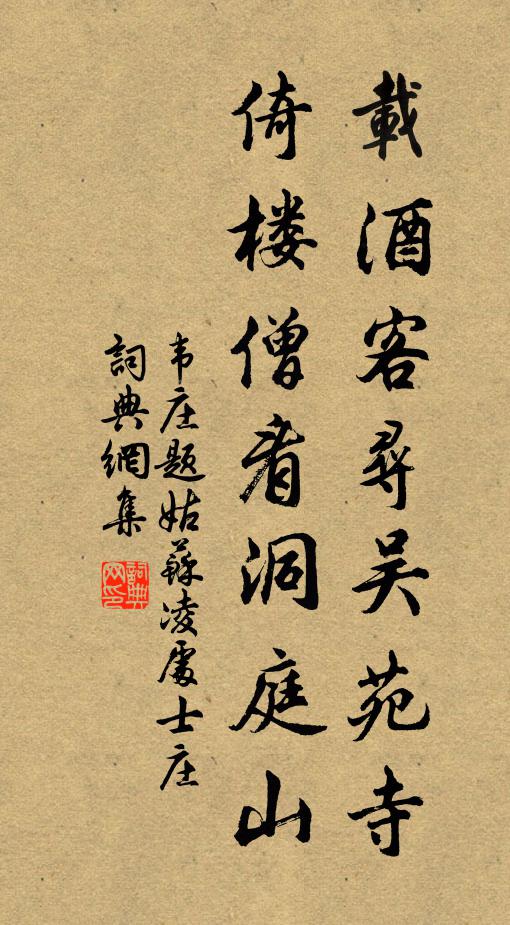 載酒客尋吴苑寺
倚楼僧看洞庭山
韦庄题姑蘇凌處士庄
詞典網集
詞典
网印